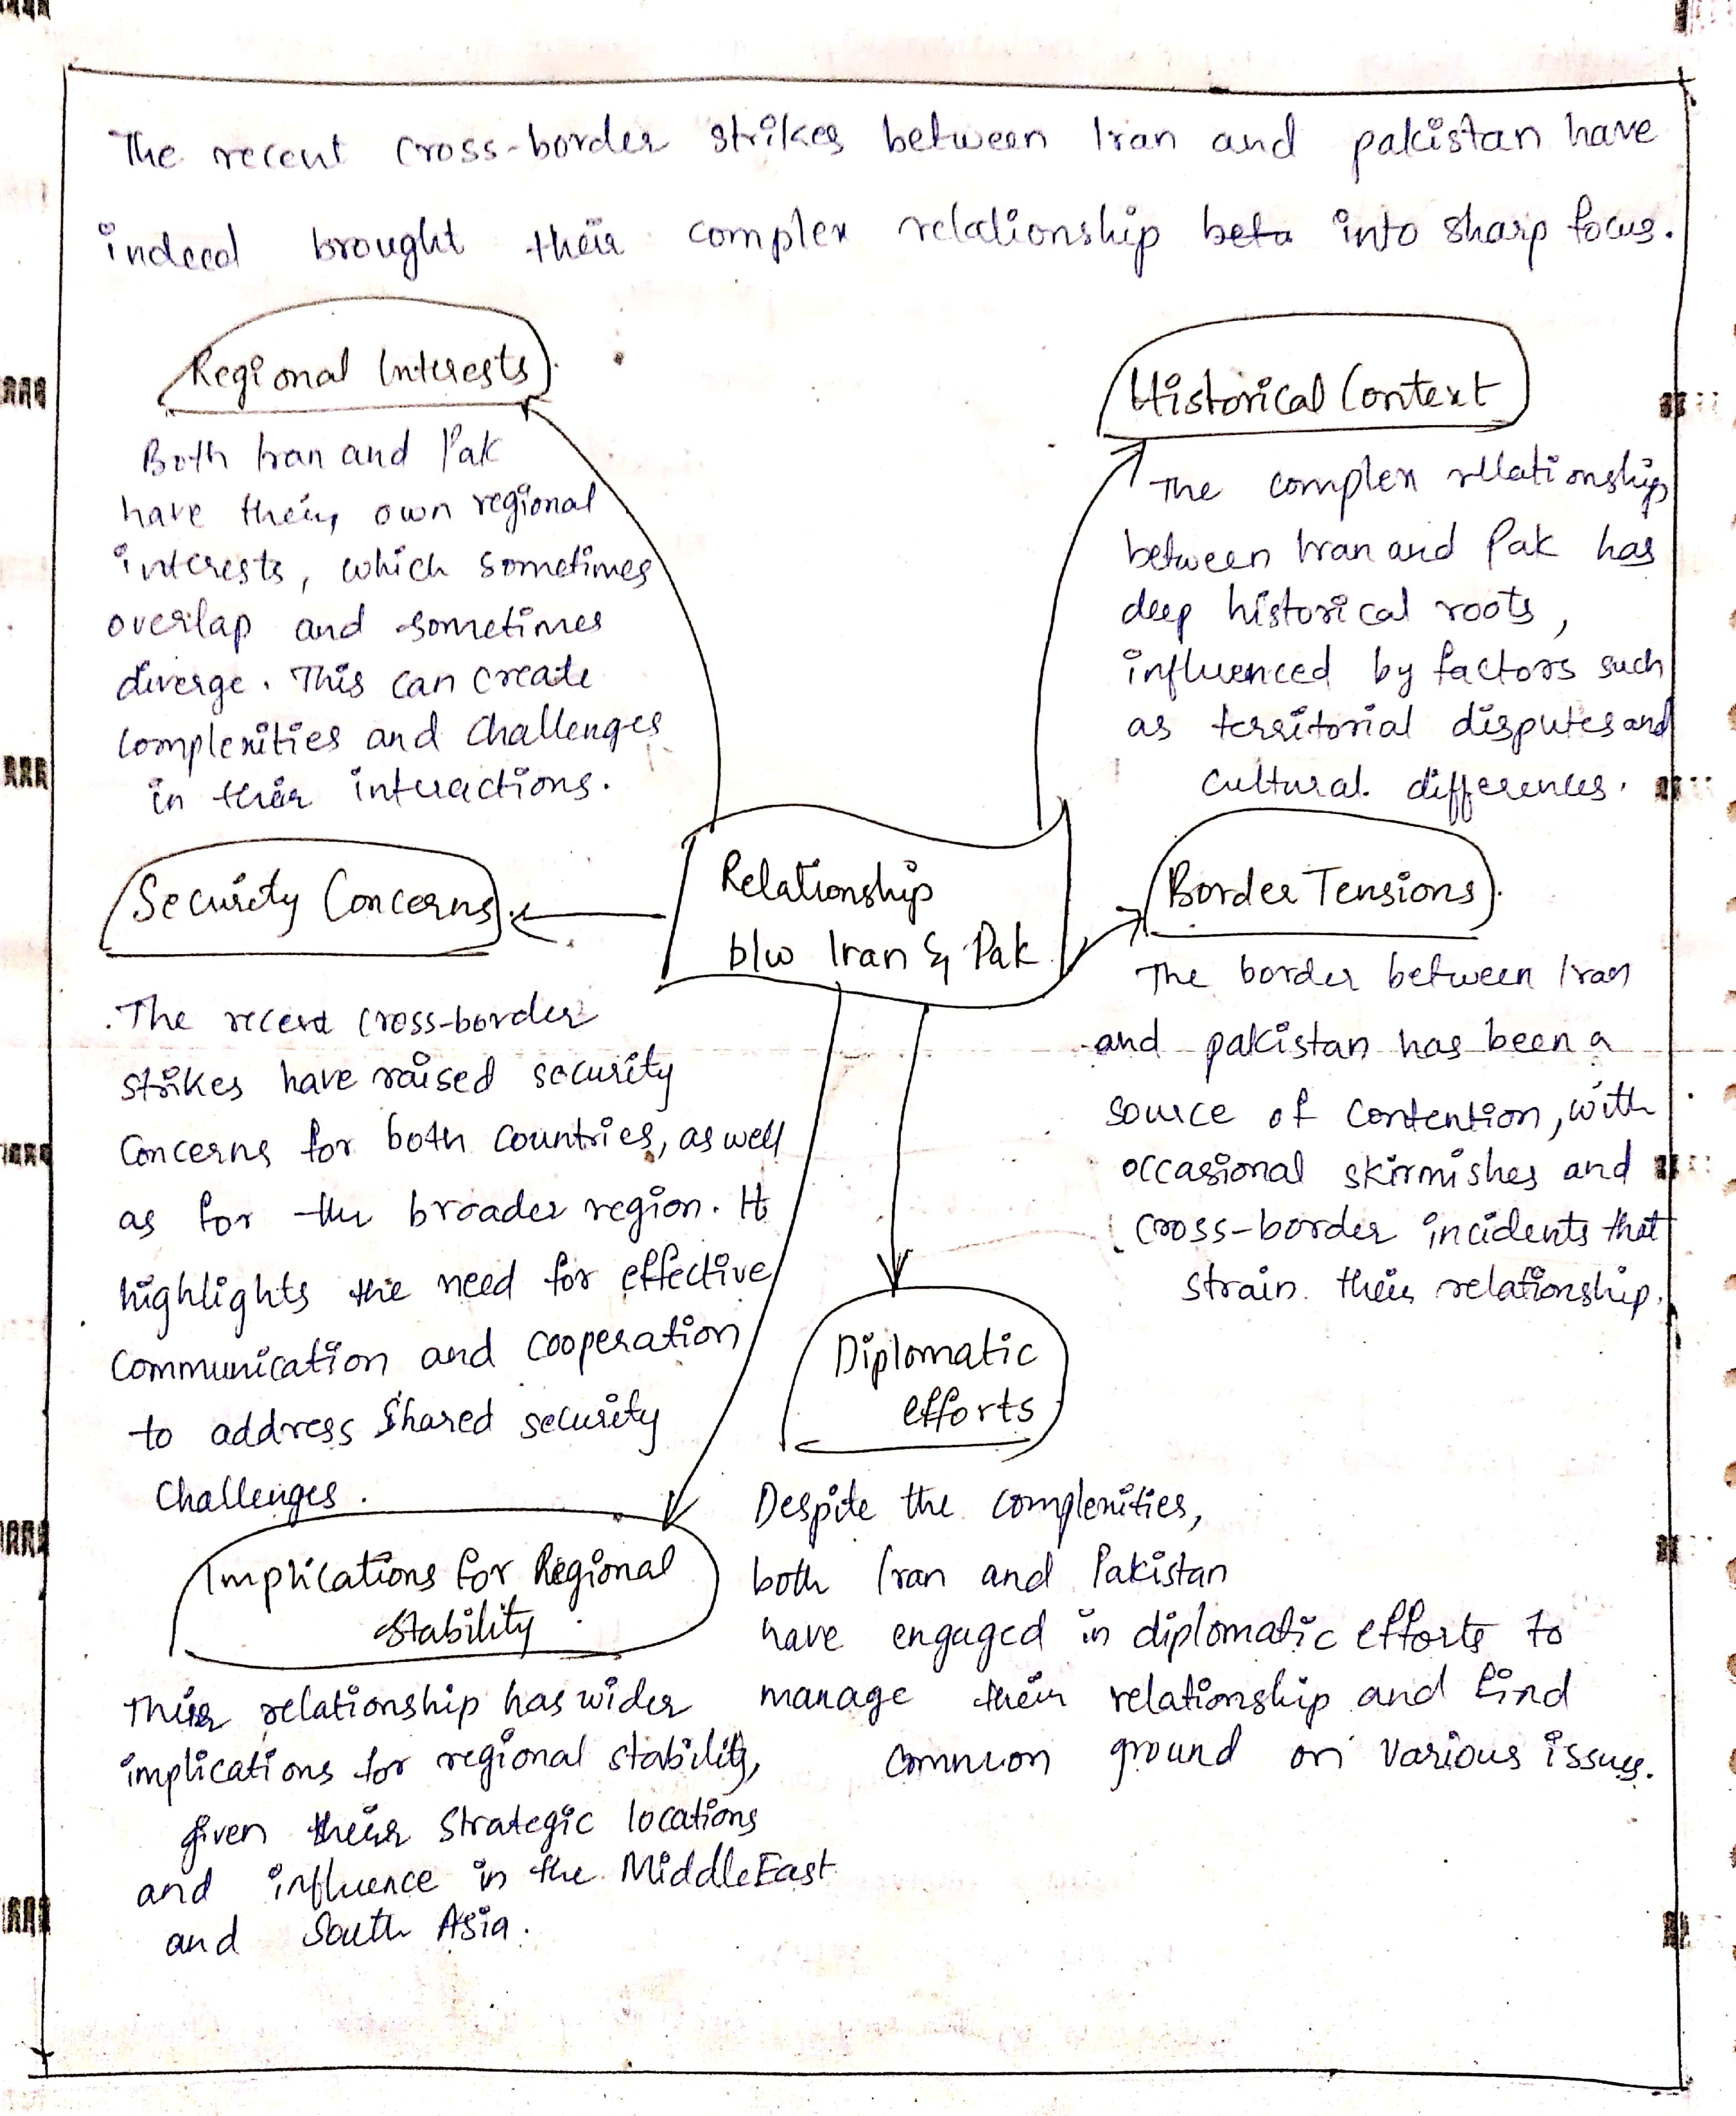 The recent cross-border strikes between Iran and pakistan have
indeed brought their complex relationship beta into sharp focus.
Regional Interests
Both Iran and Pak
have their own regional
interests, which sometimes
overlap and sometimes
diverge. This can create
complexities and challenges
in their interactions.
Historical Context
The complex relationship
between Iran and Pak has
deep historical roots,
influenced by factors such
as territorial disputes and
cultural differences.
Relationship
b/w Iran & Pak
Security Concerns
The recent cross-border
strikes have raised security
concerns for both countries, as well
as for the broader region. It
highlights the need for effective
communication and cooperation
to address shared security
challenges.
Border Tensions
The border between Iran
and pakistan has been a
source of contention, with
occasional skirmishes and
cross-border incidents that
strain their relationship.
Diplomatic
efforts
Despite the complexities,
both Iran and Pakistan
have engaged in diplomatic efforts to
manage their relationship and find
common ground on various issues.
Implications for Regional
stability
Their relationship has wider
implications for regional stability,
given their strategic locations
and influence in the Middle East
and South Asia.